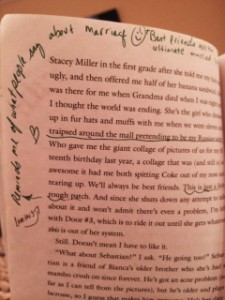 about marriage Best friends
ultimate married
Reminds me of what people say
Stacey Miller in the first grade after she told me my
ugly, and then offered me half of her banana sandwich
was there for me when Grandma died when I was eight
I thought the world was ending. She's the girl who
up in fur hats and muffs with me when we were eleven
traipsed around the mall pretending to be my Russian
Who gave me the giant collage of pictures of us for my
teenth birthday last year, a collage that was (and still is)
awesome it had me both spitting Coke out of my nose and
tearing up. We'll always be best friends. This is just a
rough patch. And since she shuts down any attempt to
about it and won't admit there's even a problem, I'm
with Door #3, which is to ride it out until she gets whatever
this is out of her system.
Still. Doesn't mean I have to like it.
"What about Sebastian?" I ask. "He going too?" Sebas-
tian is a friend of Bianca's older brother who she's had a
mambo crush on since forever. He's got an acne problem (as
far as I can tell from the pictures), but he's older and plays